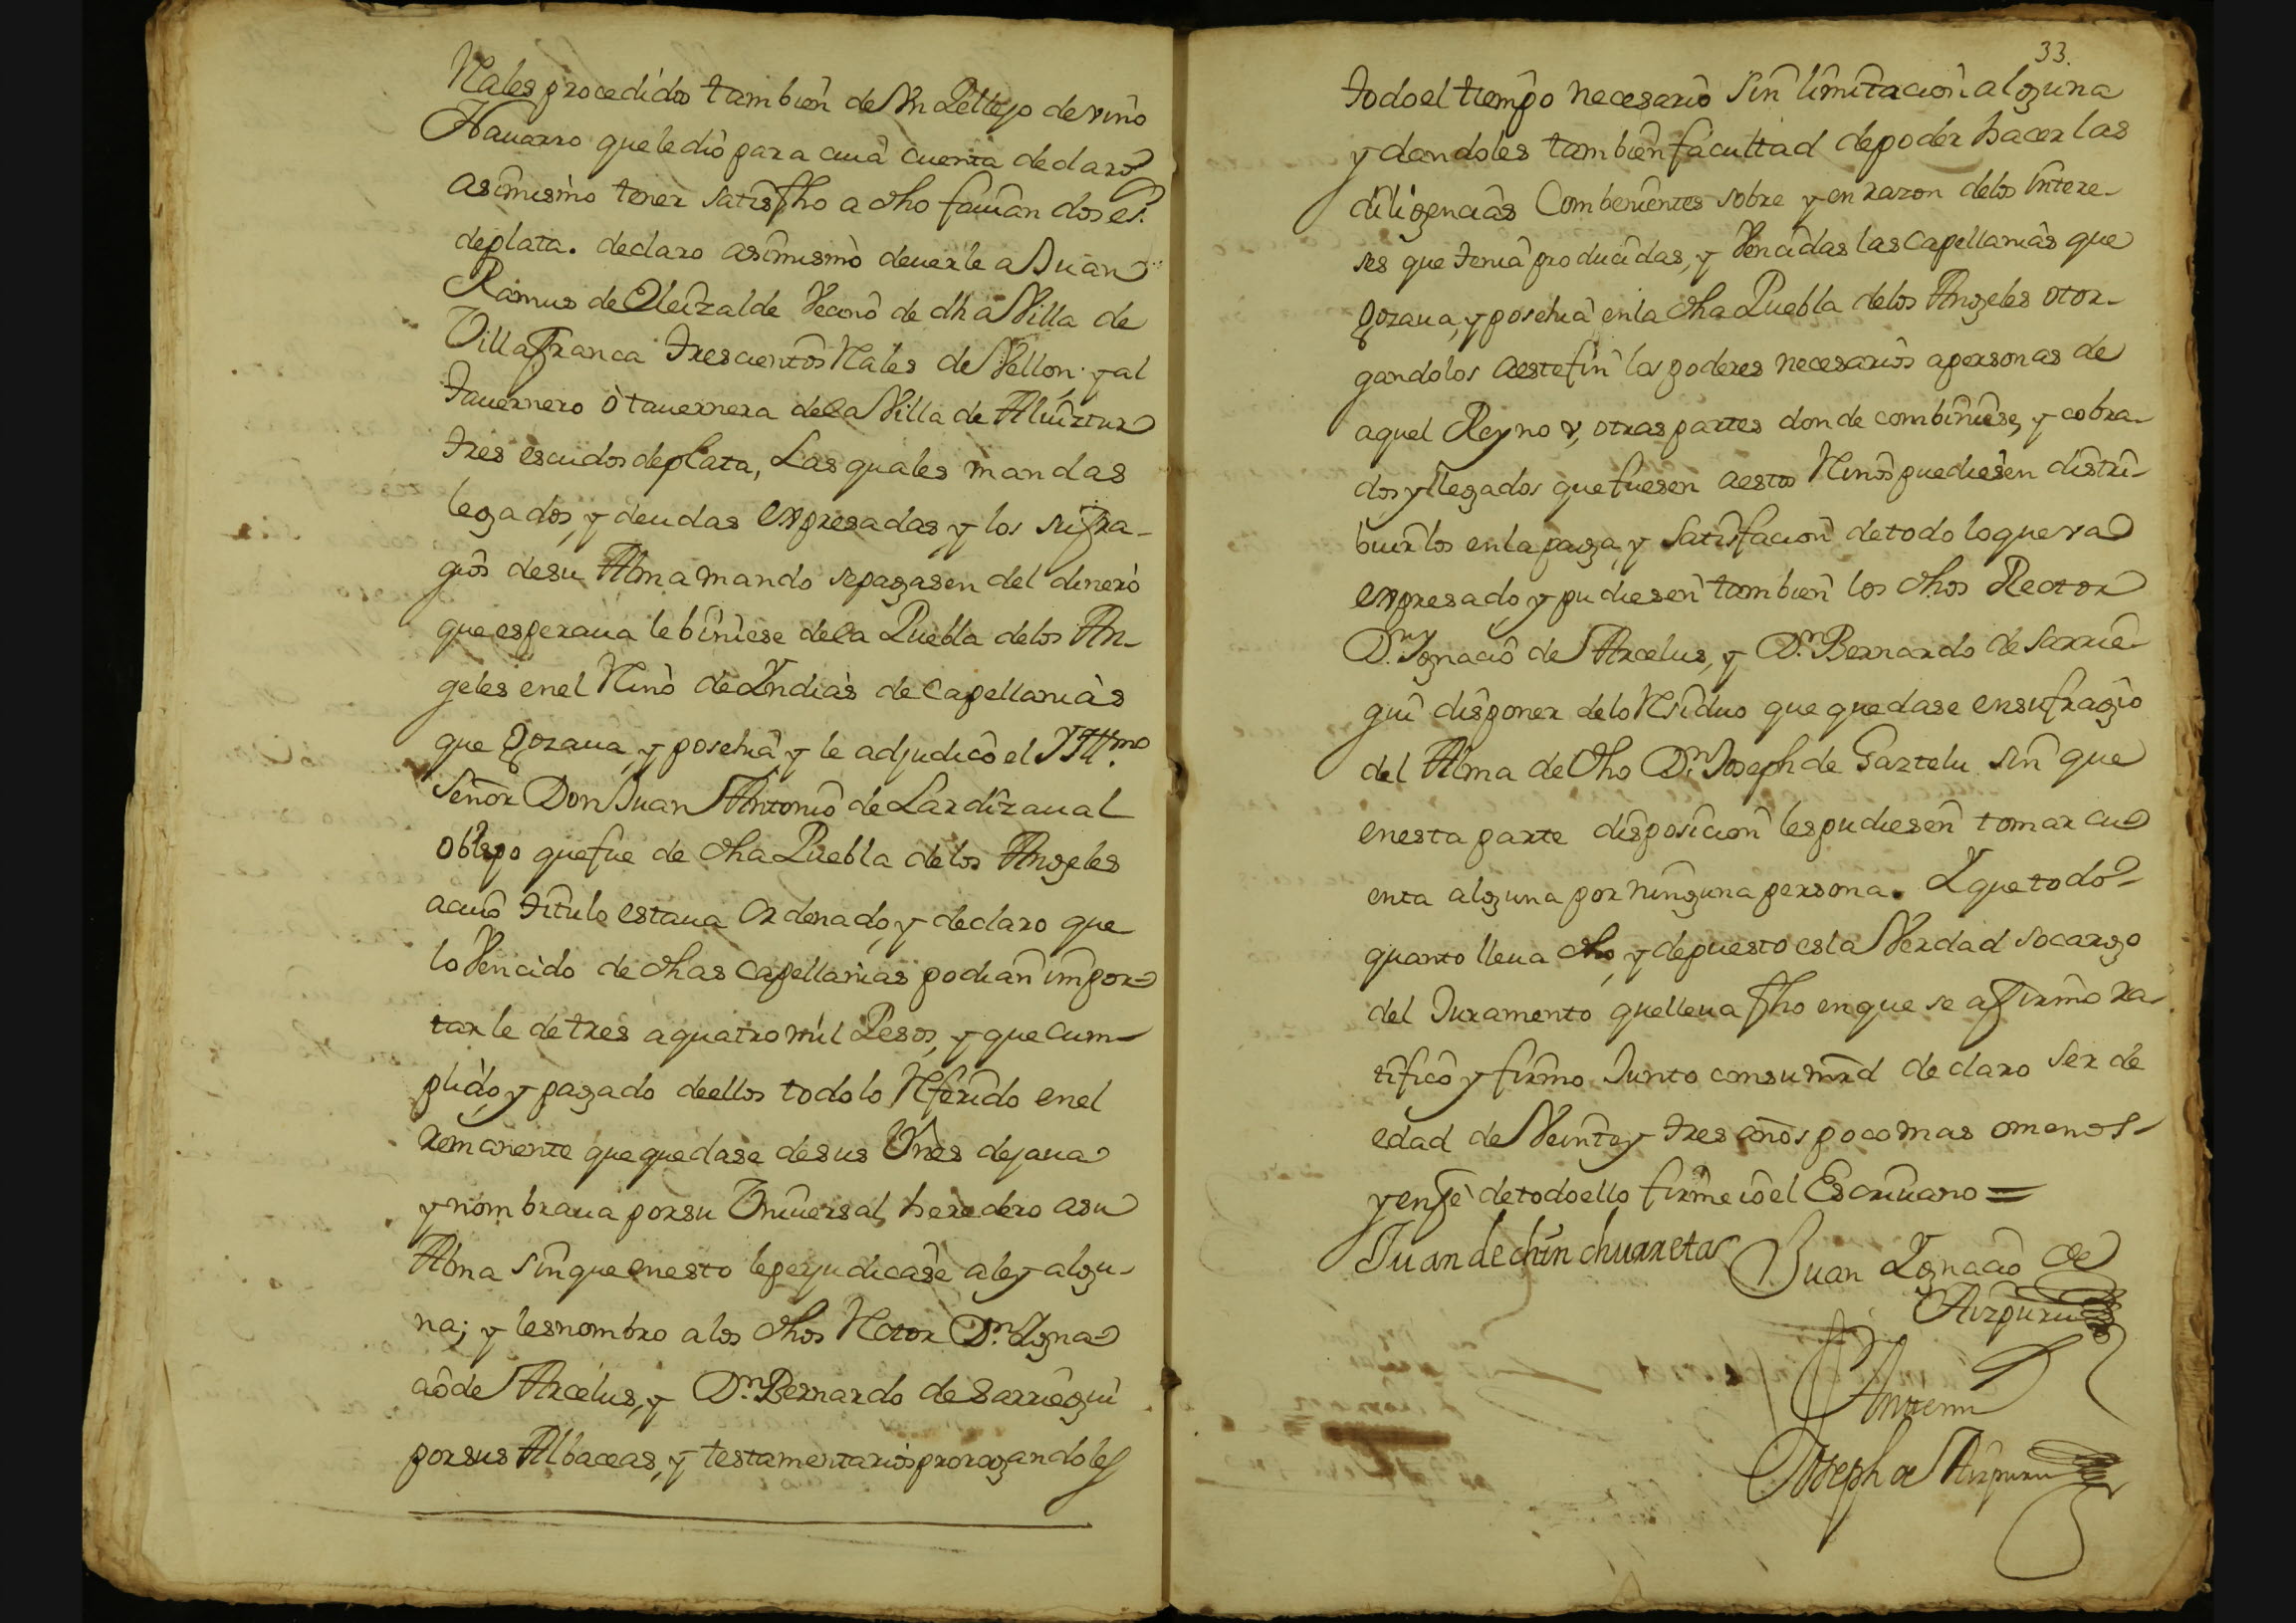 Rales procedidos tambien de Vn Pellejo de vino
Nauarro que le dio para cuia cuenta declaro
asimismo tener satisfho a dho fauian dos es.
de plata. declaro asimismo deuerle a Juan
Ramus de Oleizalde Vecino de dha Villa de
Villafranca trescientos Rales de Vellon, y al
tauernero ò tauernera de la Villa de Albiztur
tres escudos de plata, Las quales mandas
legados, y deudas expresadas y los sufra-
gios de su Alma mando se pagasen del dinero
que esperaua le biniese de la Puebla de los An-
geles en el Rino de Yndias de Capellanias
que gozaua, y posehia y le adjudico el Yllmo.
Señor Don Juan Antonio de Lardizaual
obispo que fue de dha Puebla de los Angeles
a cuio titulo estaua Ordenado, y declaro que
lo Vencido de dhas Capellanias podian impor-
tarle de tres a quatro mil Pesos, y que cum-
plido, y pagado de ellos todo lo Referido en el
remanente que quedase de sus Vnes dejaua
y nombraua por su Vniuersal heredero a su
Alma sin que en esto le perjudicase a ley algu-
na; y les nombro a los dhos Rector Dn. Ygna-
cio de Arcelus, y Dn. Bernardo de Sarriegui
por sus Albaceas, y testamentarios prorogandoles
33.
todo el tiempo necesario sin limitacion alguna
y dandoles tambien facultad de poder hacer las
diligencias Combenientes sobre y en razon de los Intere-
ses que tenia producidas, y Vencidas las Capellanias que
gozaua, y posehia en la dha Puebla de los Angeles otor-
gandolos a este fin los poderes necesarios a personas de
aquel Reyno y, otras partes donde combiniese, y cobra-
dos y llegados que fuesen a estos Rinos puediesen distri-
buirlos en la paga, y satisfacion de todo lo que va
expresado, y pudiesen tambien los dhos Rector
Dn. Ygnacio de Arcelus, y Dn. Bernardo de Sarrie-
gui disponer de lo Residuo que quedase en sufragio
del Alma de dho Dn. Joseph de Gaztelu sin que
en esta parte disposicion les pudiesen tomar cu-
enta alguna por ninguna persona. Y que todo
quanto lleua dho, y depuesto es la Verdad so cargo
del Juramento que lleua fho en que se afirmo ra-
tifico y firmo Junto con su mrd declaro ser de
edad de Veinte y tres años poco mas o menos
y en fe de todo ello firme io el Escriuano =
Juan de chinchurreta
Juan Ygnacio de
Aizpuru
Antemi
Joseph de Aizpuru